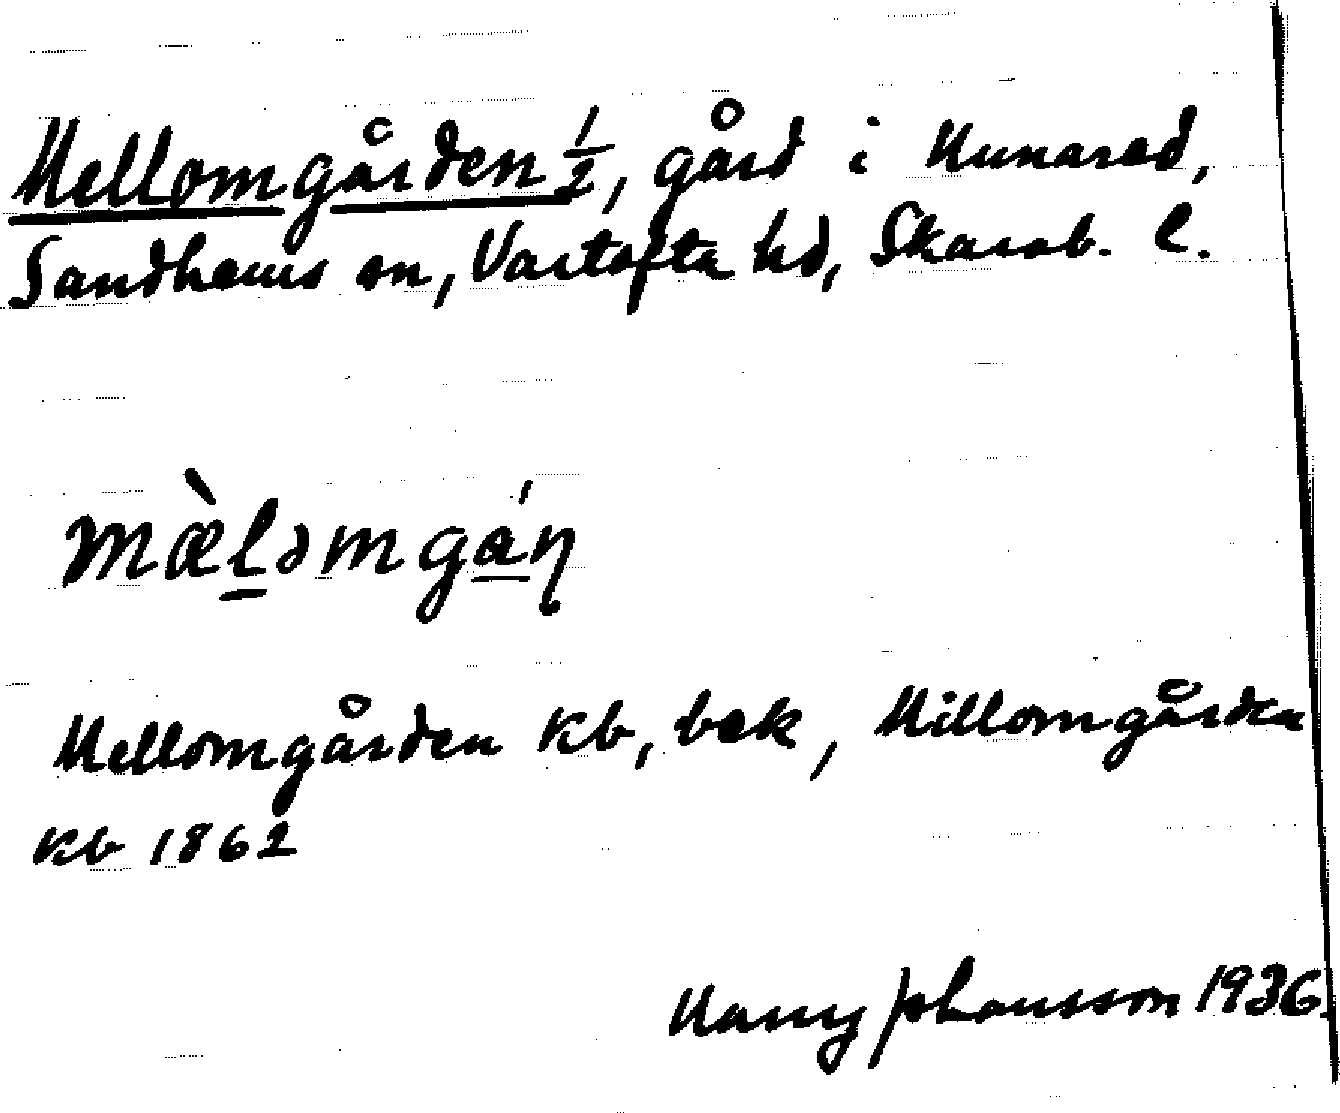 Mellomgården 1/2, gård i Kunared,
Sandhems sn, Vartofta hd, Skarab. l.
mæ̀l̠əmgá̠ɳ
Mellomgården kb, bek, Millomgården
kb 1862
Harry Johansson 1936.